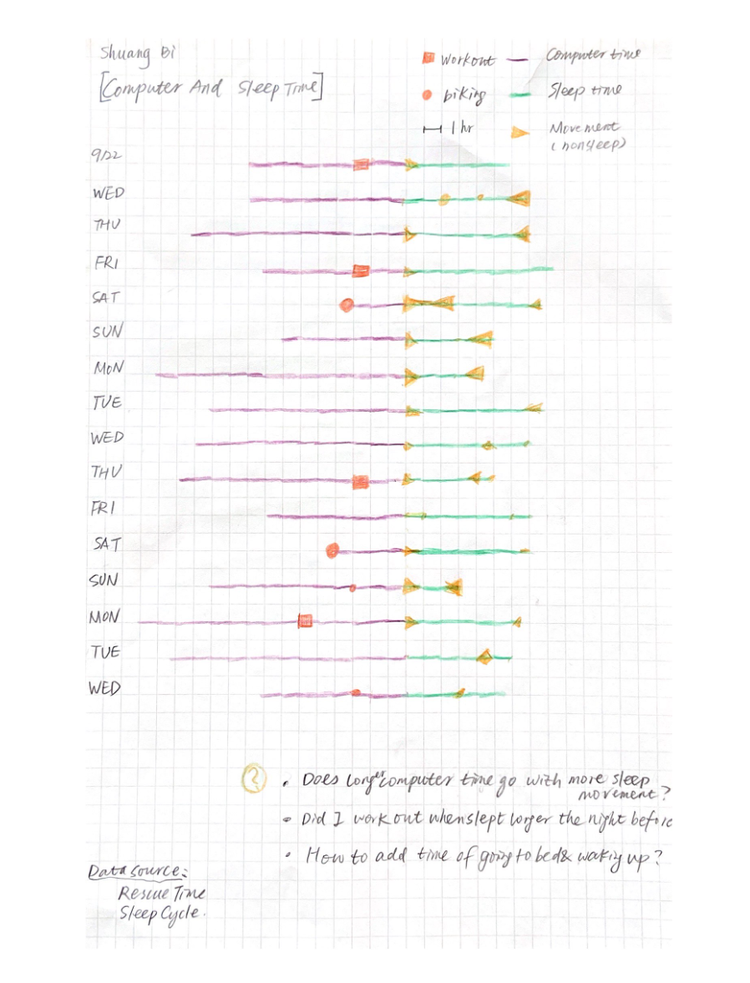 Shuang Bi
[Computer And Sleep Time]
workout
Computer time
biking
Sleep time
1 hr
Movement
(nonsleep)
9/22
WED
THU
FRI
SAT
SUN
MON
TUE
WED
THU
FRI
SAT
SUN
MON
TUE
WED
?
• Does longer computer time go with more sleep
movement?
• Did I work out when slept longer the night before
• How to add time of going to bed & waking up?
Data source:
Rescue Time
Sleep Cycle.